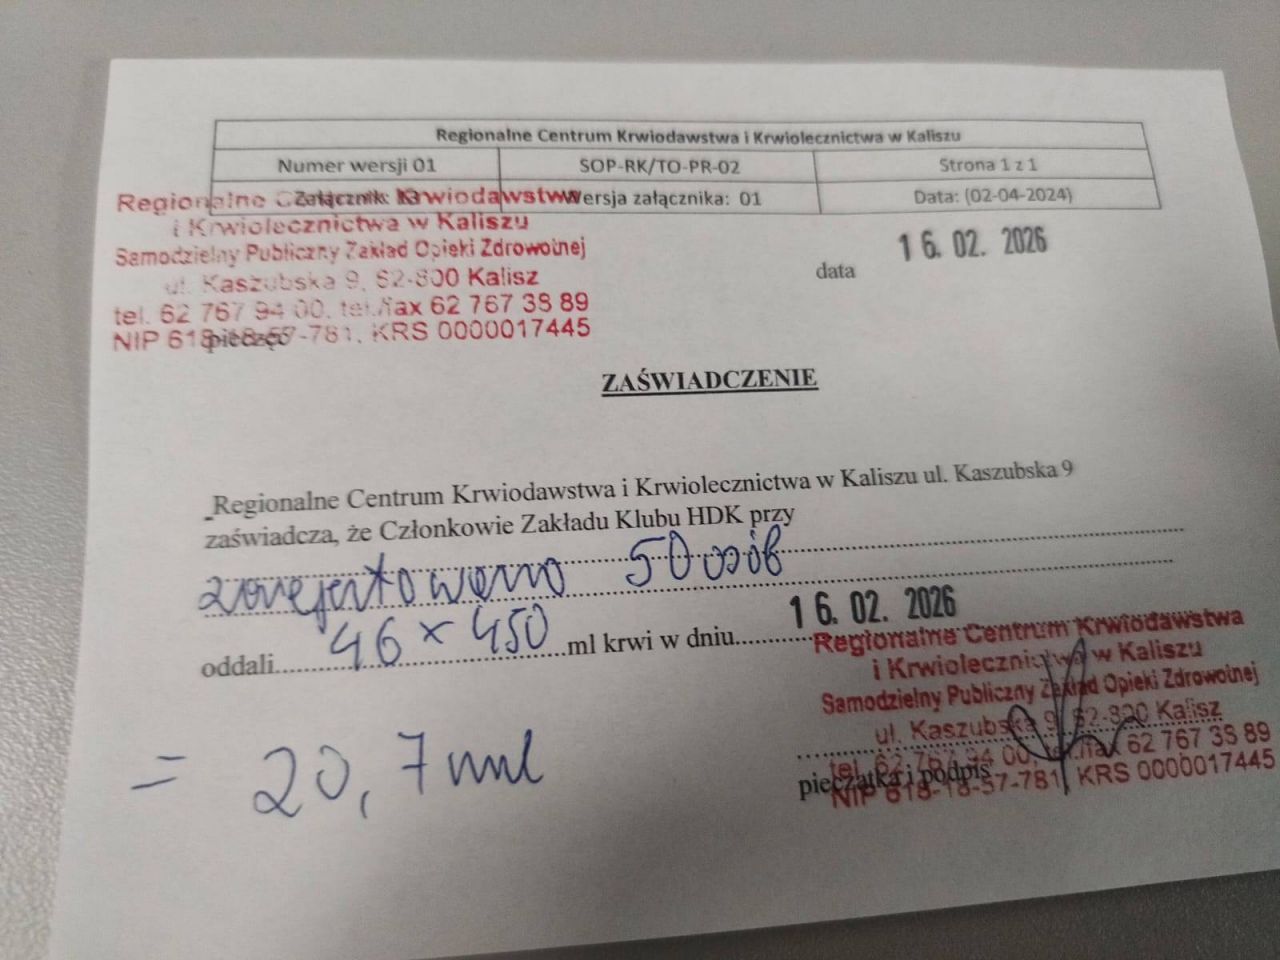 Regionalne Centrum Krwiodawstwa i Krwiolecznictwa w Kaliszu
Numer wersji 01 SOP-RK/TO-PR-02 Strona 1 z 1
Załącznik: Wersja załącznika: 01 Data: (02-04-2024)
Regionalne Centrum Krwiodawstwa
i Krwiolecznictwa w Kaliszu
Samodzielny Publiczny Zakład Opieki Zdrowotnej
ul. Kaszubska 9, 62-800 Kalisz
tel. 62 767 94 00, tel./fax 62 767 38 89
NIP 618-18-57-781, KRS 0000017445
pieczęć
16. 02. 2026
data
ZAŚWIADCZENIE
Regionalne Centrum Krwiodawstwa i Krwiolecznictwa w Kaliszu ul. Kaszubska 9
zaświadcza, że Członkowie Zakładu Klubu HDK przy
zarejestrowano 50 osób
oddali 46 x 450 ml krwi w dniu 16. 02. 2026
= 20,7
Regionalne Centrum Krwiodawstwa
i Krwiolecznictwa w Kaliszu
Samodzielny Publiczny Zakład Opieki Zdrowotnej
ul. Kaszubska 9, 62-800 Kalisz
tel. 62 767 94 00, tel./fax 62 767 38 89
NIP 618-18-57-781, KRS 0000017445
pieczątka i podpis